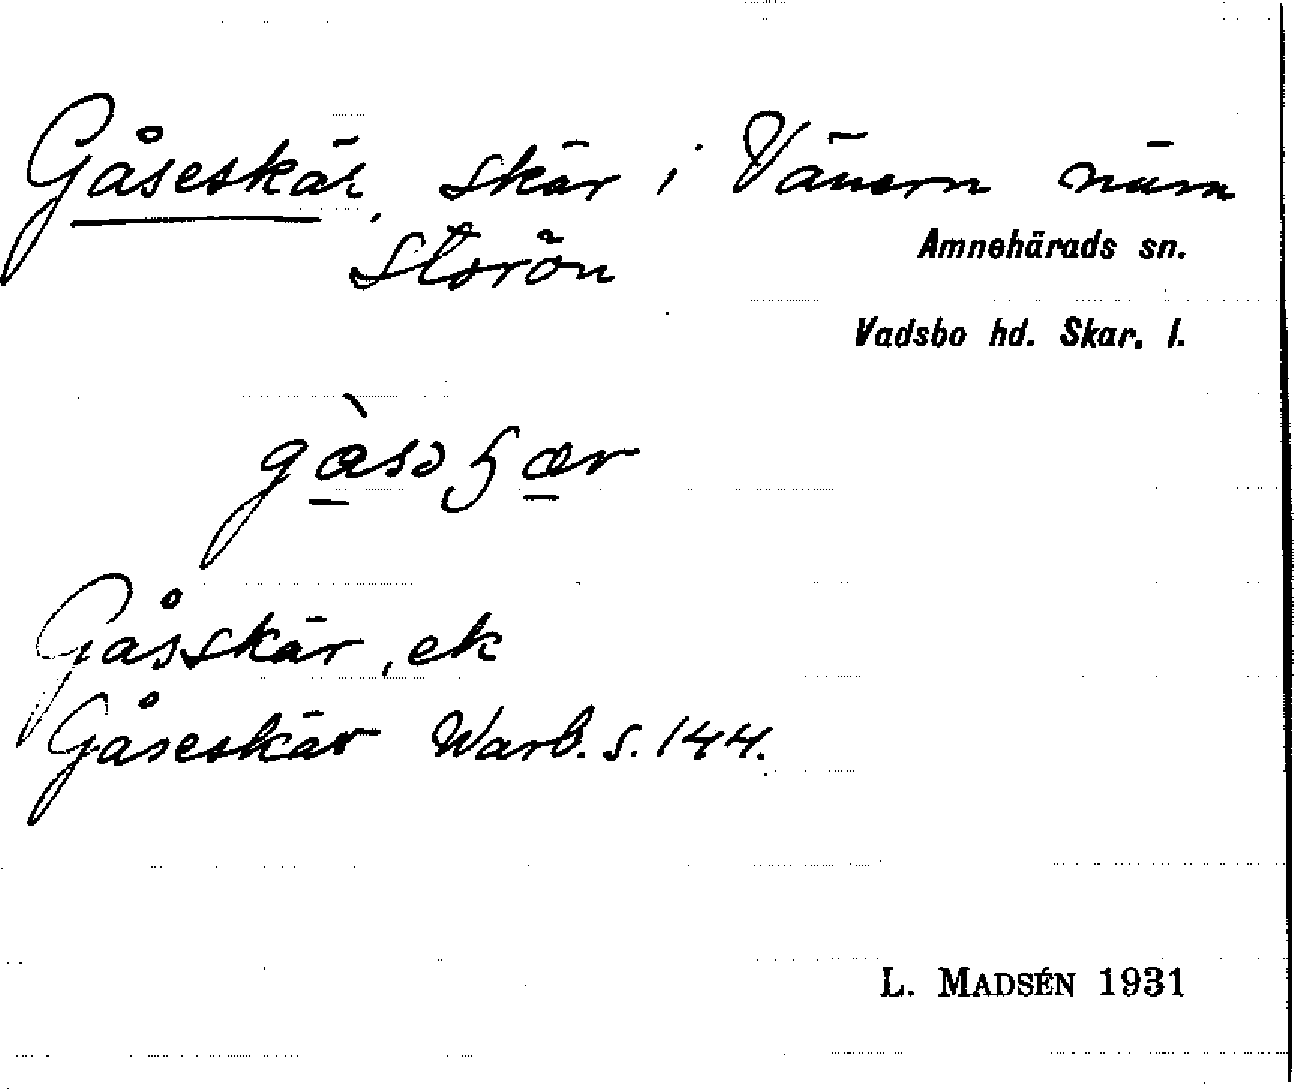 Gåseskär, skär i Vänern näm
Storön
Amnehärads sn.
Vadsbo hd. Skar. l.
Gåsskär, ek
Gåseskär Warb. s. 144.
L. MADSÉN 1931